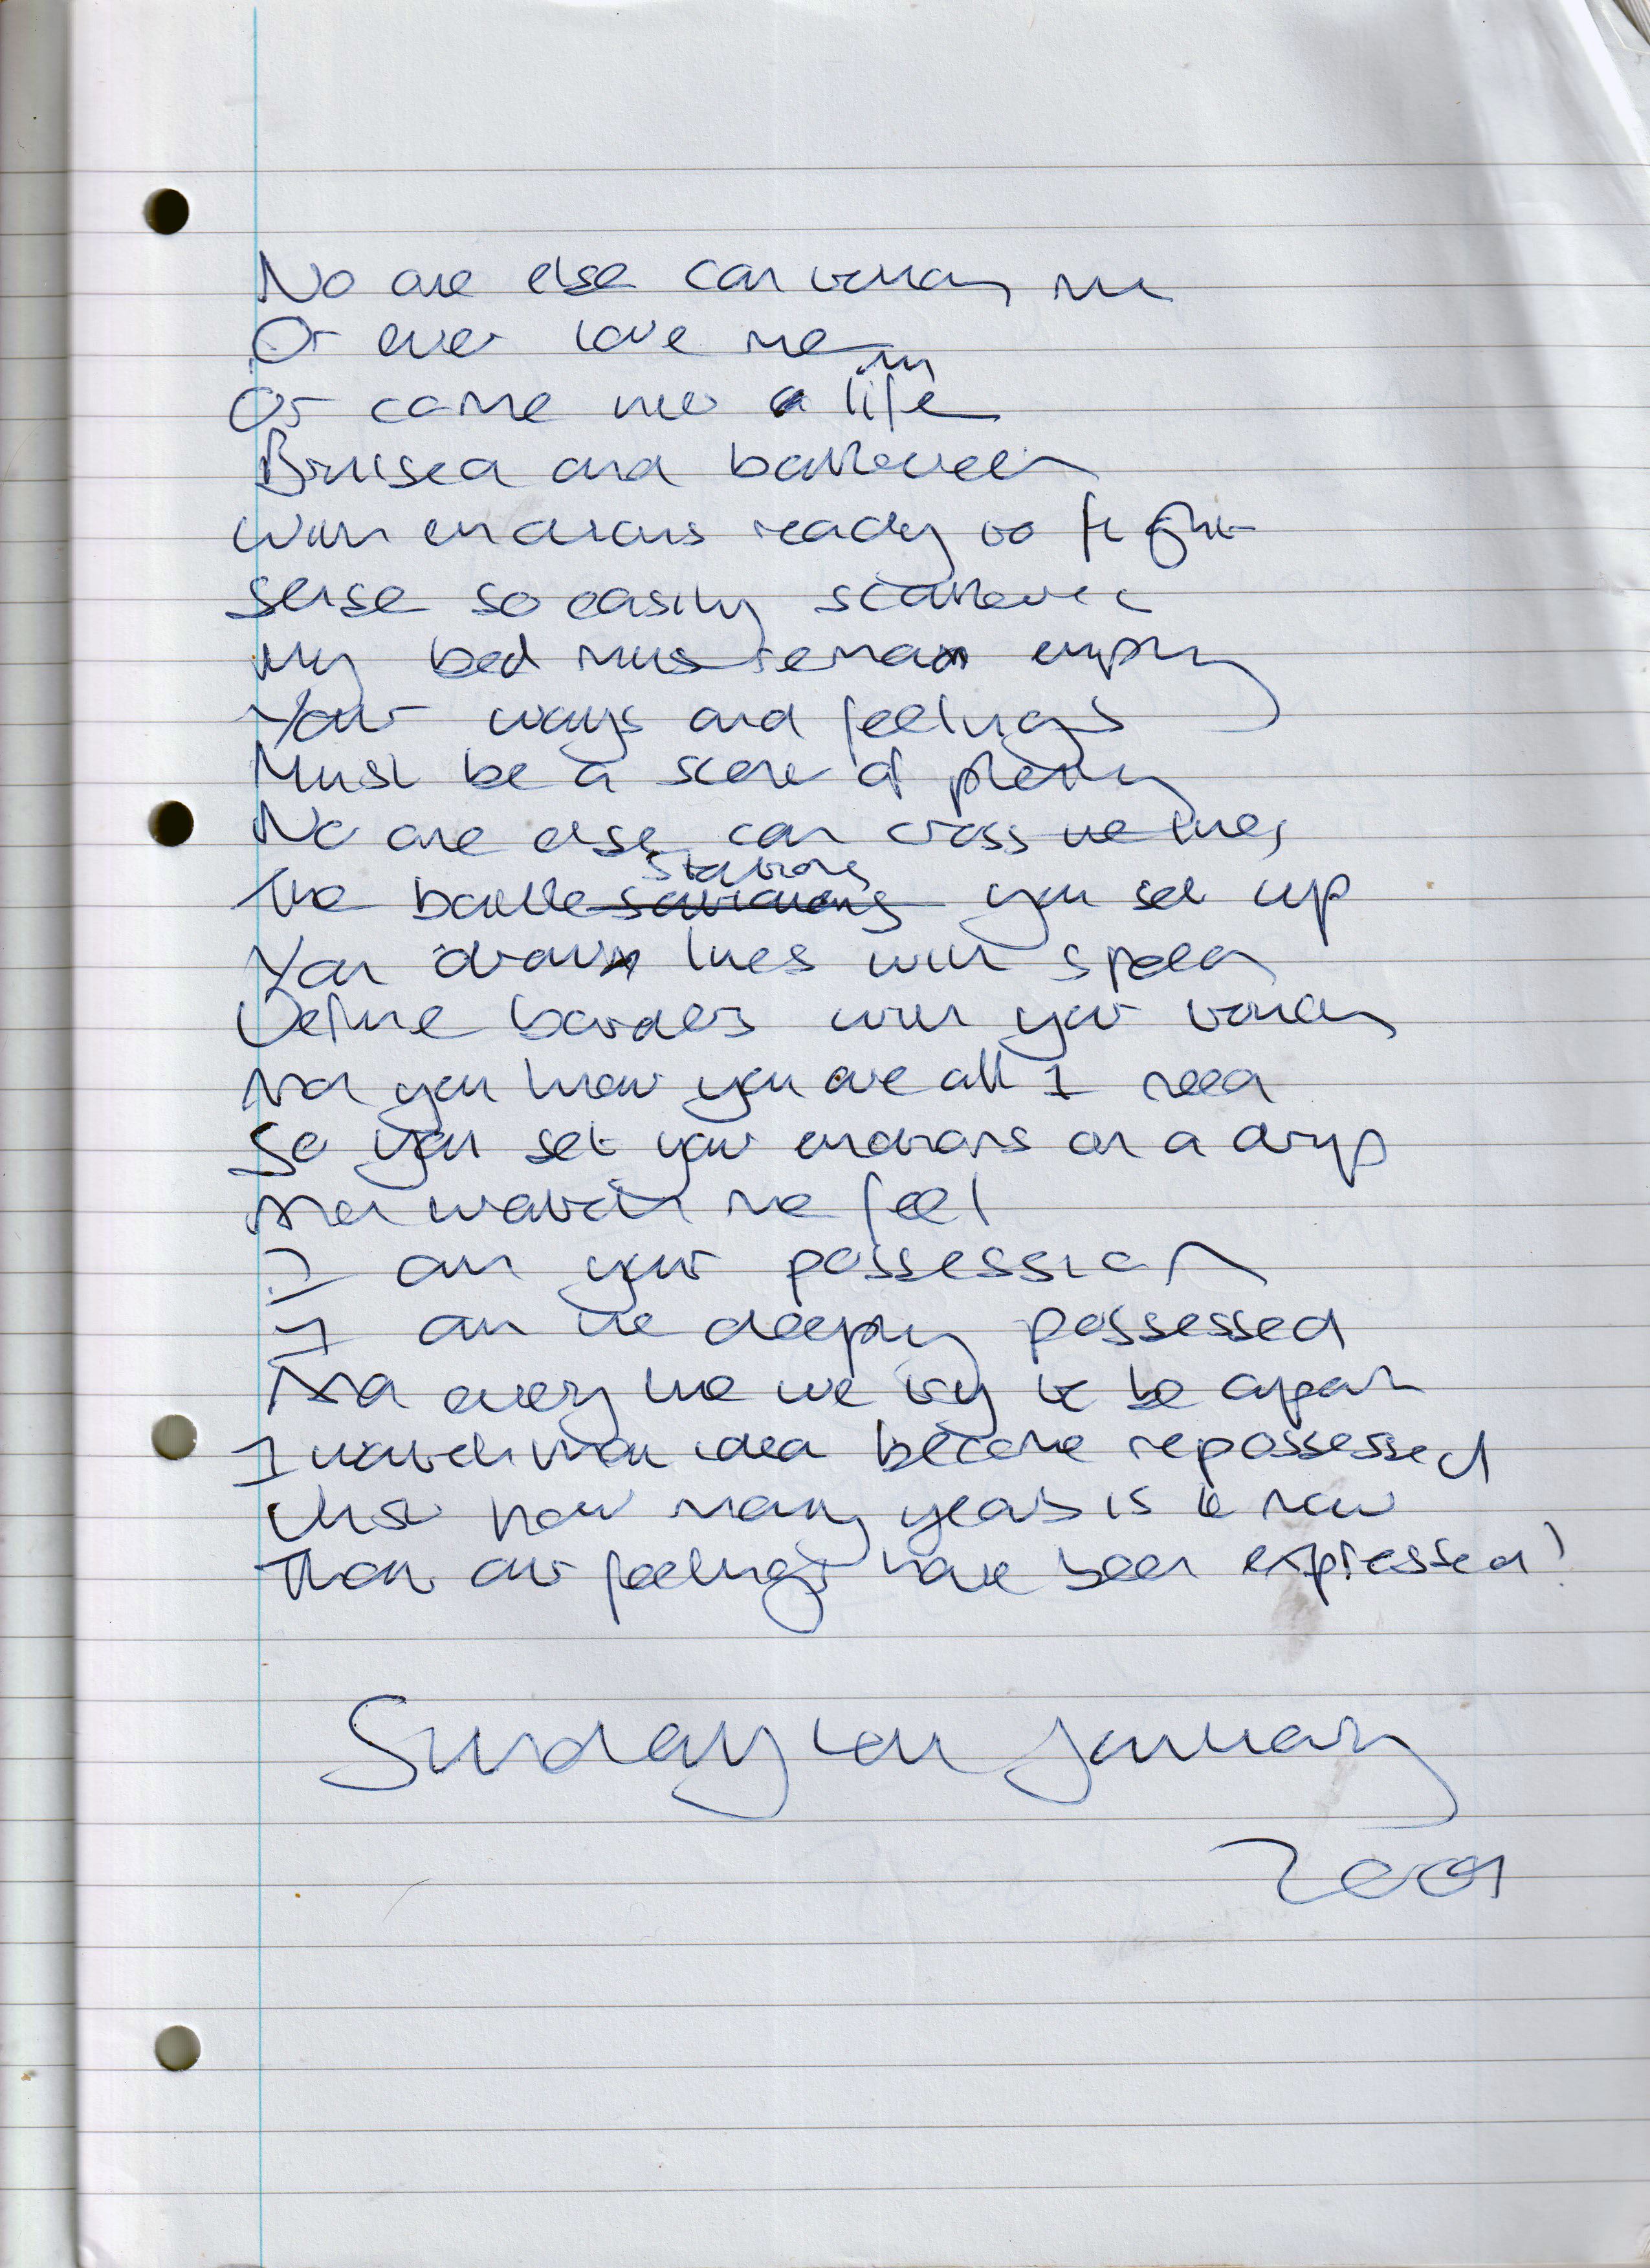 No one else can touch me
Or ever love me
Or come into my life
Bruised and battered
With emotions ready to fight
Sense so easily scattered
My bed must remain empty
Your ways and feelings
Must be a scene of plenty
No one else can cross the lines
The battle stations you set up
You draw lines with speed
Define borders with your touch
And you know you are all I need
So you set your emotions on a drip
And watch me feel
I am your possession
I am the deeply possessed
And every time we try to be apart
I watch that idea become repossessed
Just how many years is it now
That our feelings have been expressed!
Sunday January
2009